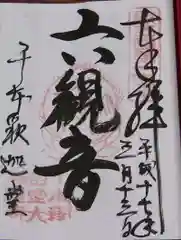 奉拝
平成十七年
月十三日
六観音
千本釈迦堂